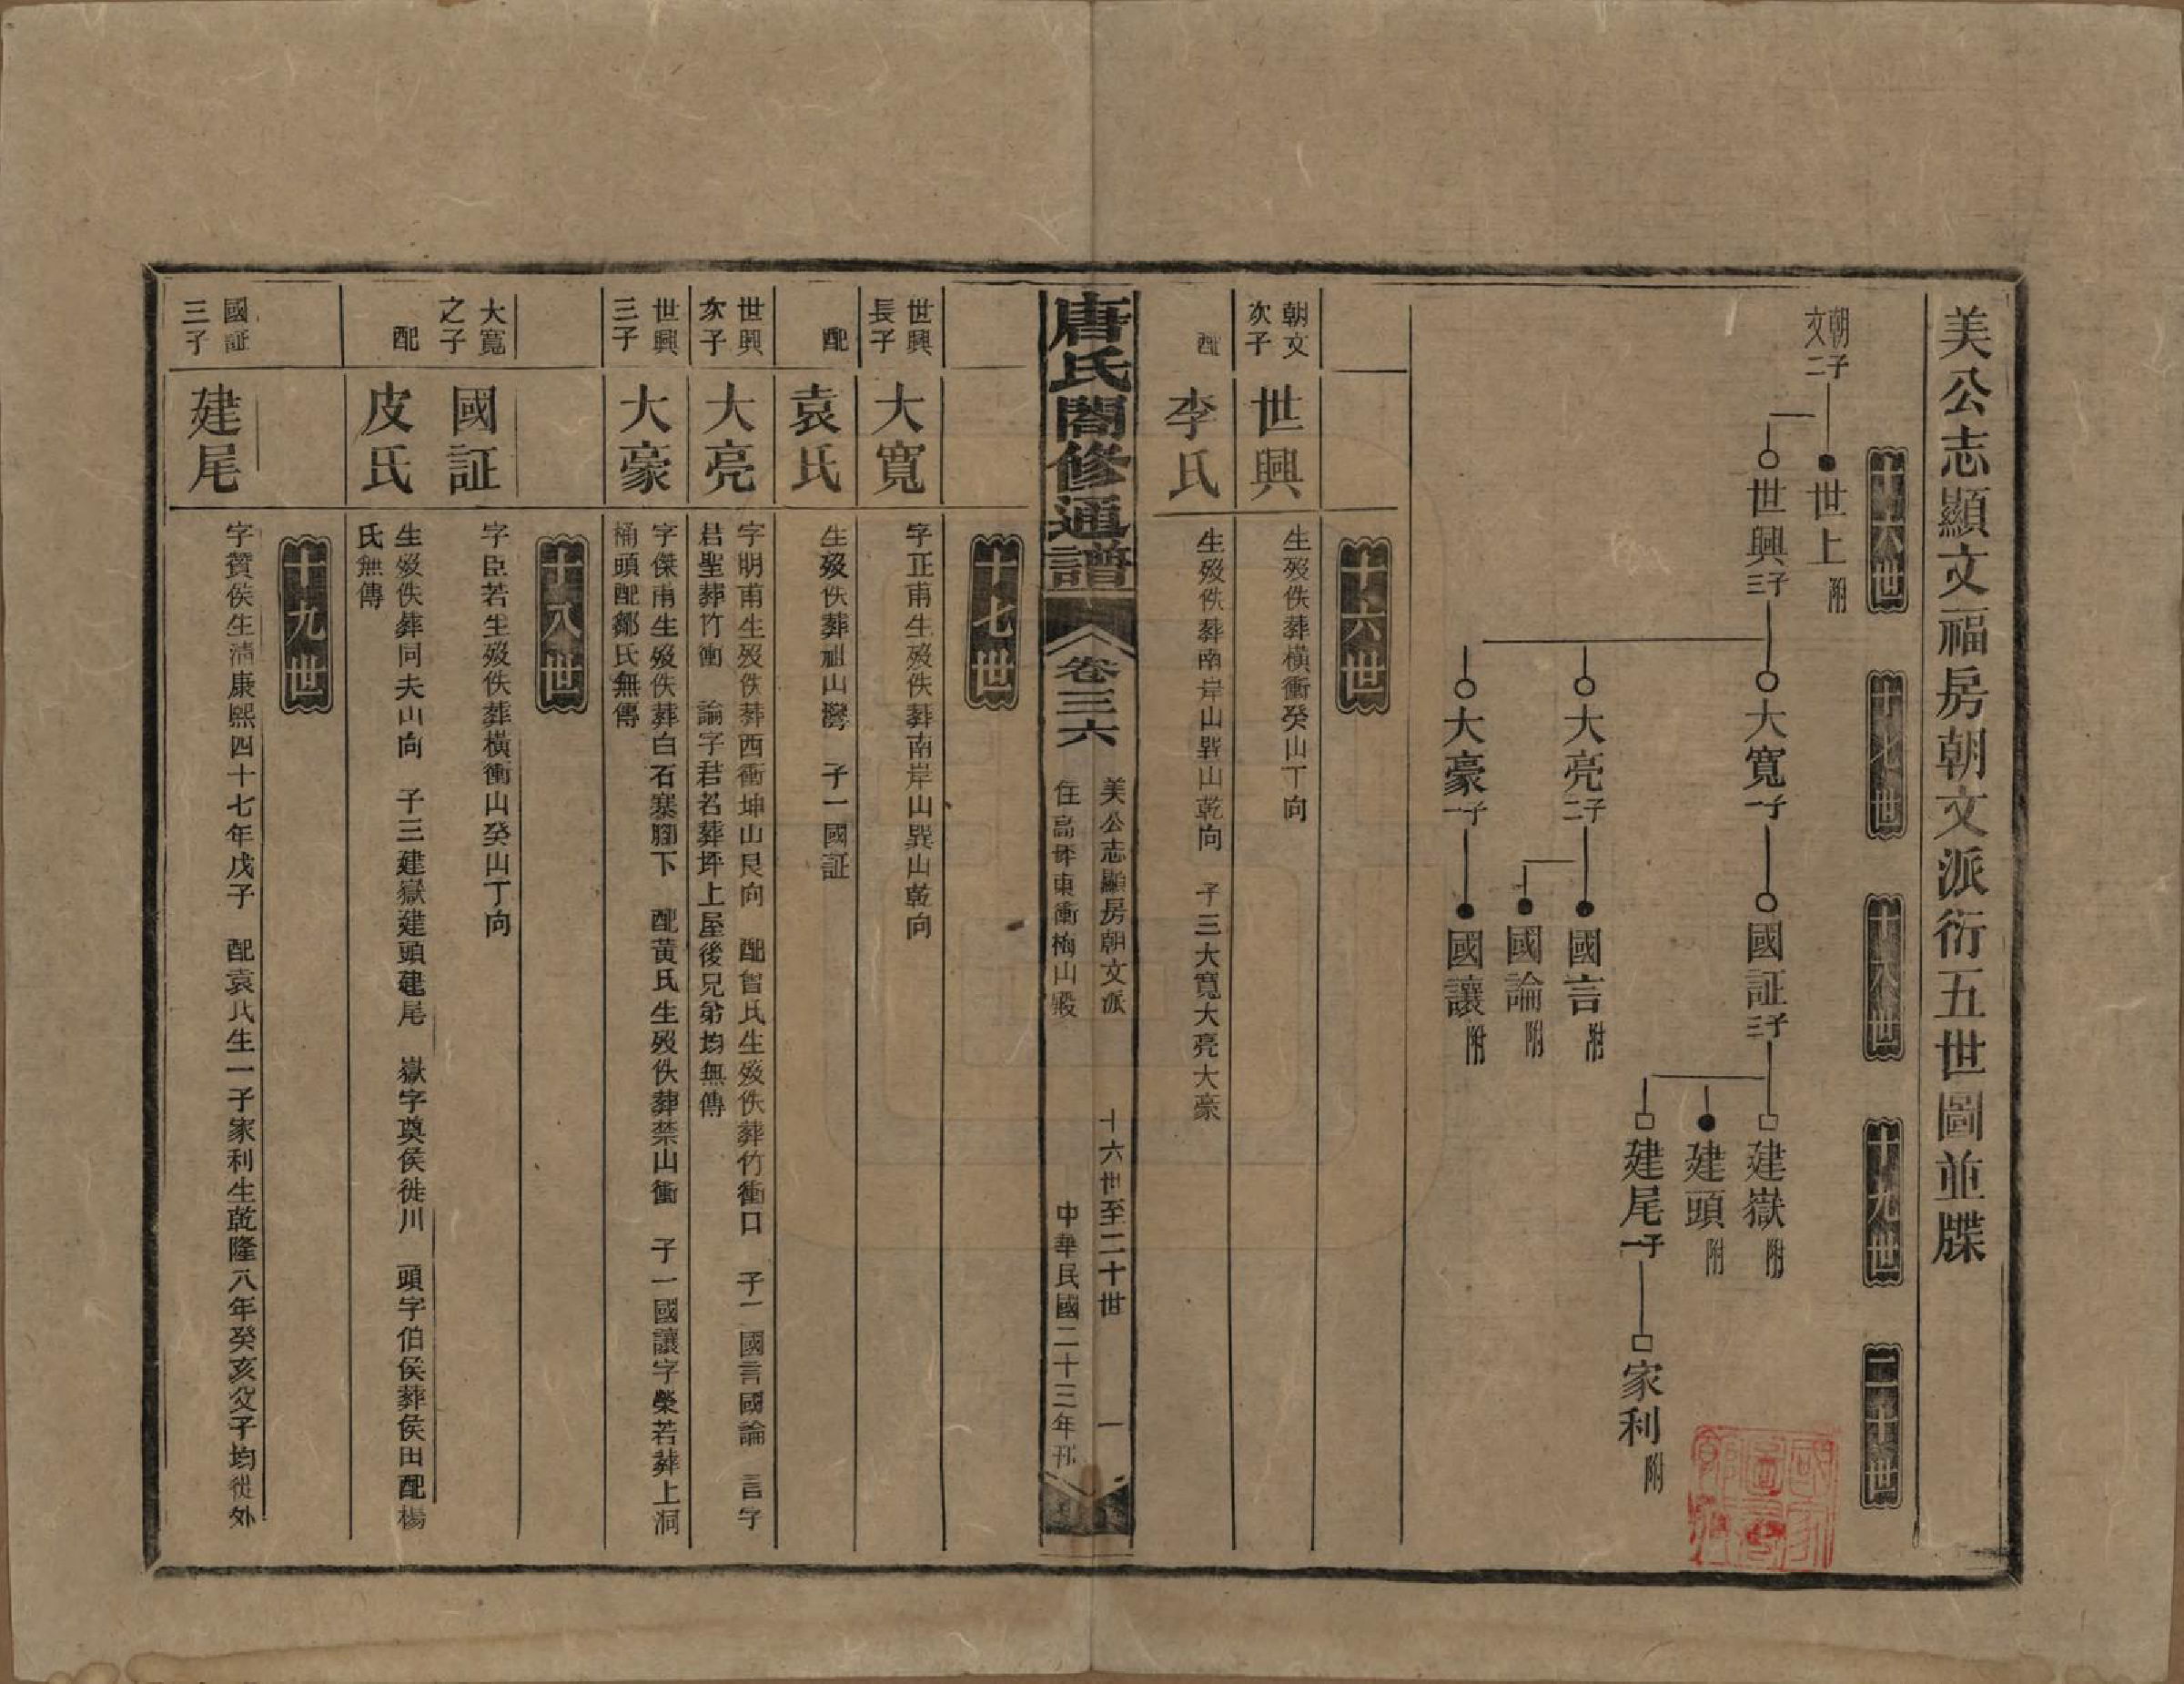 美公志顯文福房朝文派衍五世圖並牒
十六世
十七世
十八世
十九世
二十世
朝文 二子
世上 附
世興 三子
大寬 一子
國証 三子
建嶽 附
建頭 附
建尾 一子
家利 附
大亮 二子
國言 附
國論 附
大豪 一子
國讓 附
十六世
朝文次子
世興
生歿佚葬橫衝癸山丁向
配
李氏
生歿佚葬南岸山巽山乾向 子三大寬大亮大豪
唐氏闔修通譜
卷三六
美公志顯房朝文派 十六世至二十世 一
住高坪東衝梅山殿 中華民國二十三年刊
十七世
世興長子
大寬
字正甫生歿佚葬南岸山巽山乾向
配
袁氏
生歿佚葬祖山灣 子一國証
世興次子
大亮
字明甫生歿佚葬西衝坤山艮向 配曾氏生歿佚葬竹衝口 子二國言國論 言字
君聖葬竹衝 論字君名葬坪上屋後兄弟均無傳
世興三子
大豪
字傑甫生歿佚葬白石寨腳下 配黃氏生歿佚葬禁山衝 子一國讓字榮若葬上洞
桶頭配鄒氏無傳
十八世
大寬之子
國証
字臣若生歿佚葬橫衝山癸山丁向
配
皮氏
生歿佚葬同夫山向 子三建嶽建頭建尾 嶽字奠侯徙川 頭字伯侯葬侯田配楊
氏無傳
十九世
國証三子
建尾
字贊侯生清康熙四十七年戊子 配袁氏生一子家利生乾隆八年癸亥父子均徙外